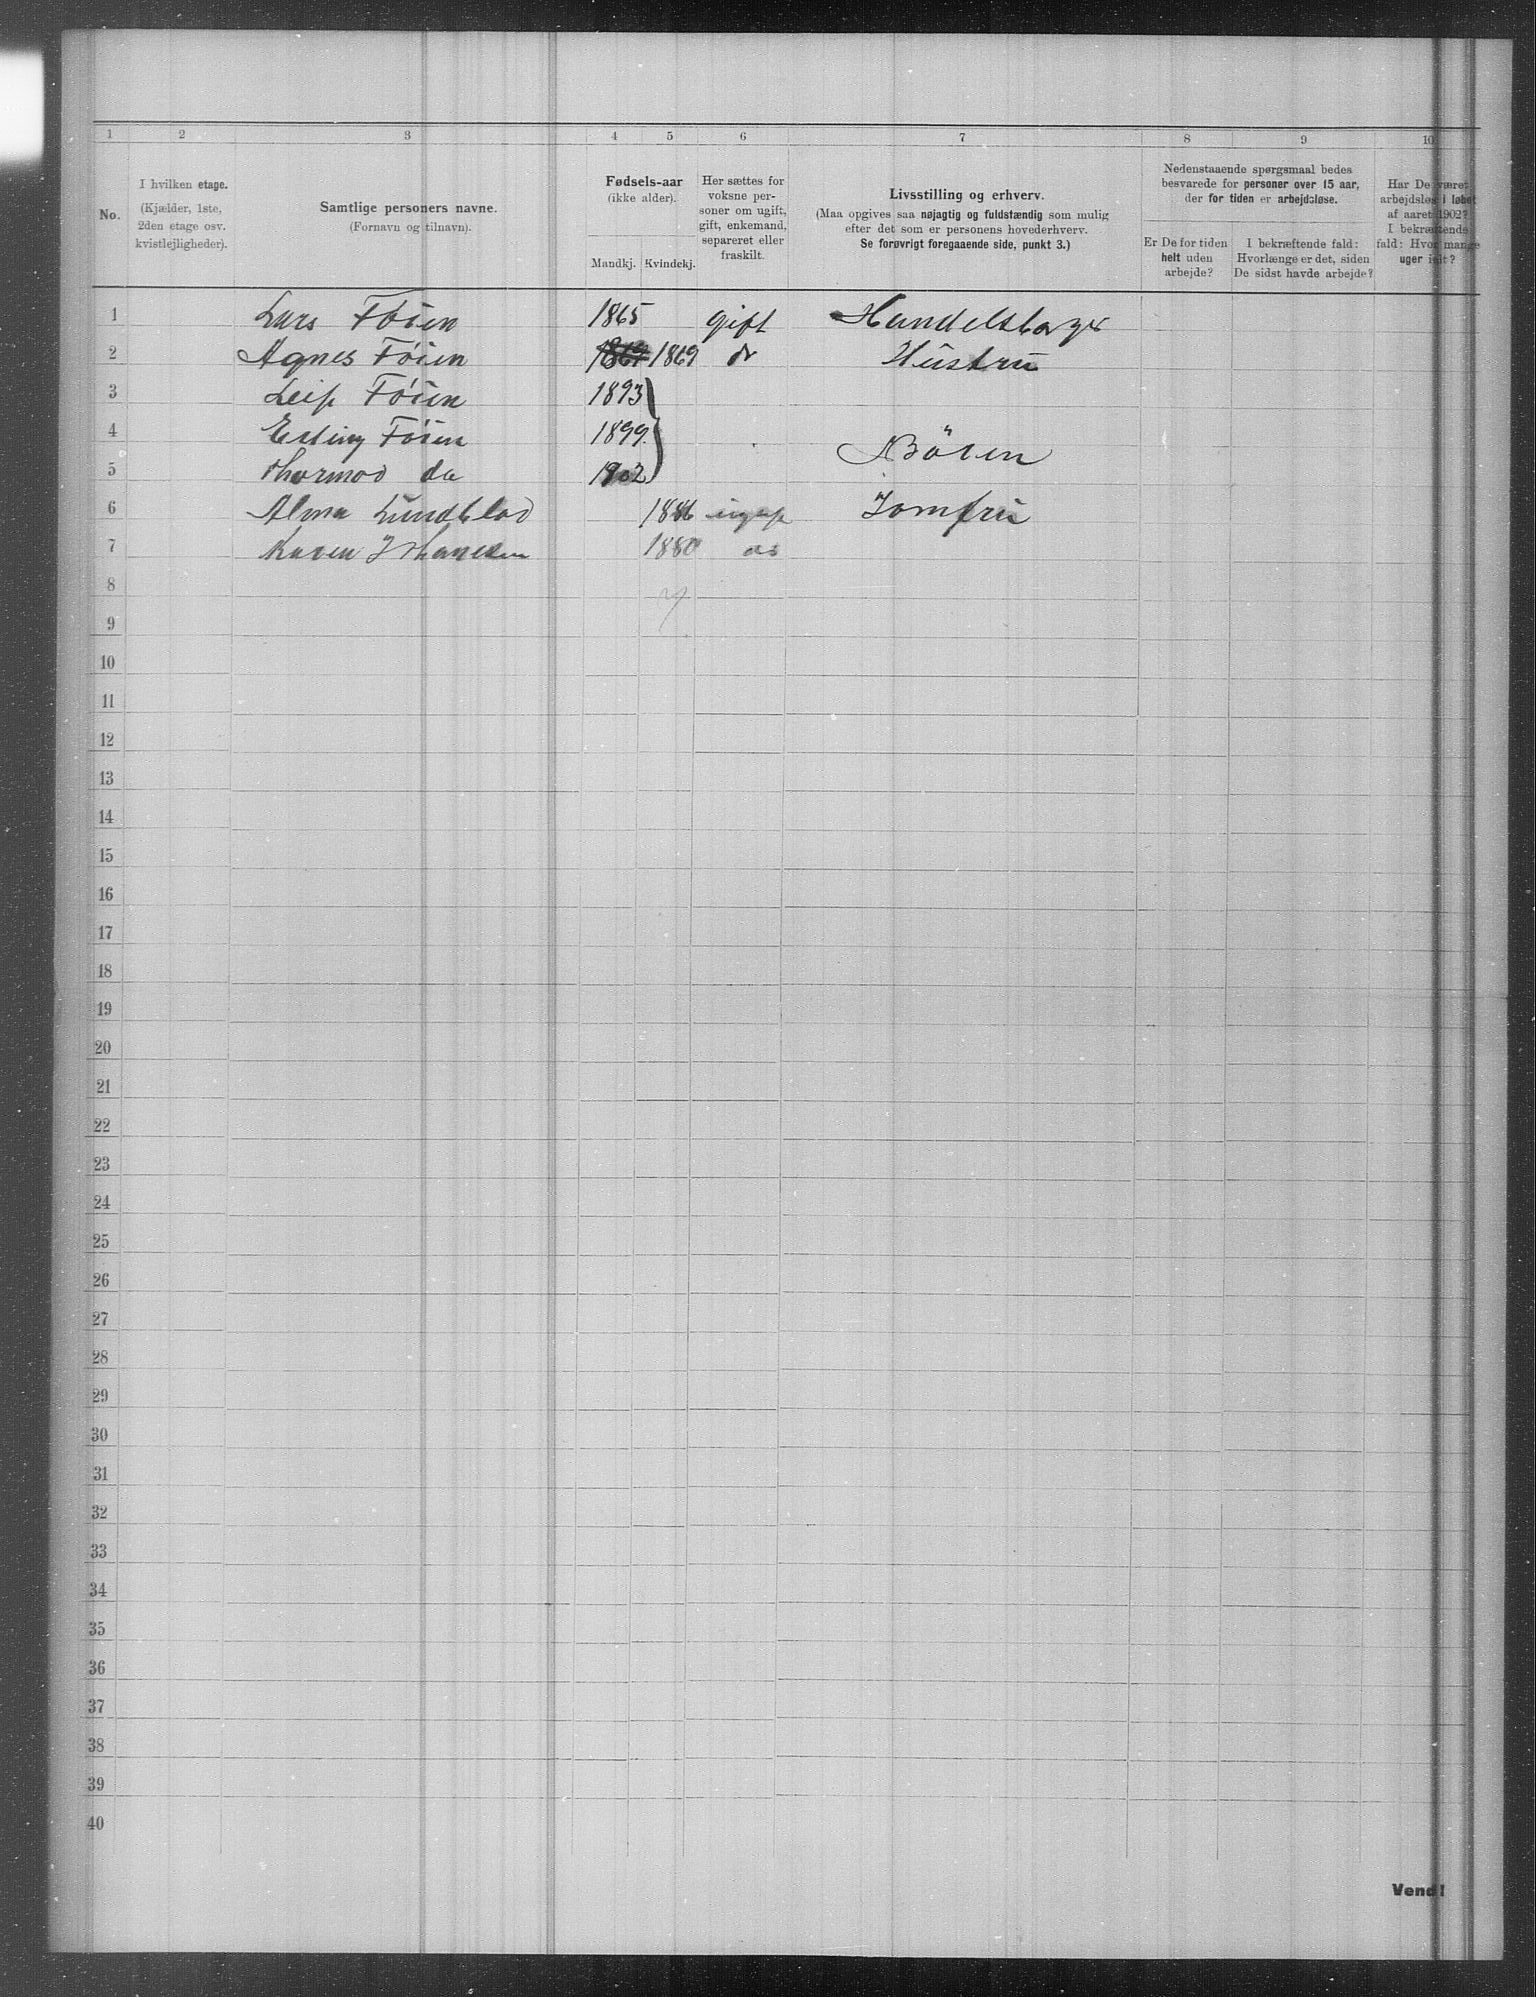 1 2 3 4 5 6 7 8 9 10
No.
I hvilken etage.
(Kjælder, 1ste,
2den etage osv.
kvistlejligheder).
Samtlige personers navne.
(Fornavn og tilnavn).
Fødsels-aar
(ikke alder).
Mandkj. Kvindekj.
Her sættes for
voksne per-
soner om ugift,
gift, enkemand,
separeret eller
fraskilt.
Livsstilling og erhverv.
(Maa opgives saa nøjagtig og fuldstændig som mulig
efter det som er personens hovederhverv.
Se forøvrigt foregaaende side, punkt 3.)
Nedenstaaende spørgsmaal bedes
besvarede for personer over 15 aar,
der for tiden er arbejdsløse.
Er De for tiden
helt uden
arbejde?
I bekræftende fald:
Hvorlænge er det, siden
De sidst havde arbejde?
Har De været
arbejdsløs i løbet
af aaret 1902?
I bekræftende
fald: Hvor mange
uger ialt?
1 Lars Föien 1865 gift
2 Agnes Föien 1869 do Hüstrü
3 Leif Föien 1893
4 Erling Föien 1899
5 Thormod do 1902
6 Alma Lundblad 1886 ugift Jomfrü
7 Karen Johansen 1880 do
8
9
10
11
12
13
14
15
16
17
18
19
20
21
22
23
24
25
26
27
28
29
30
31
32
33
34
35
36
37
38
39
40
Vend!